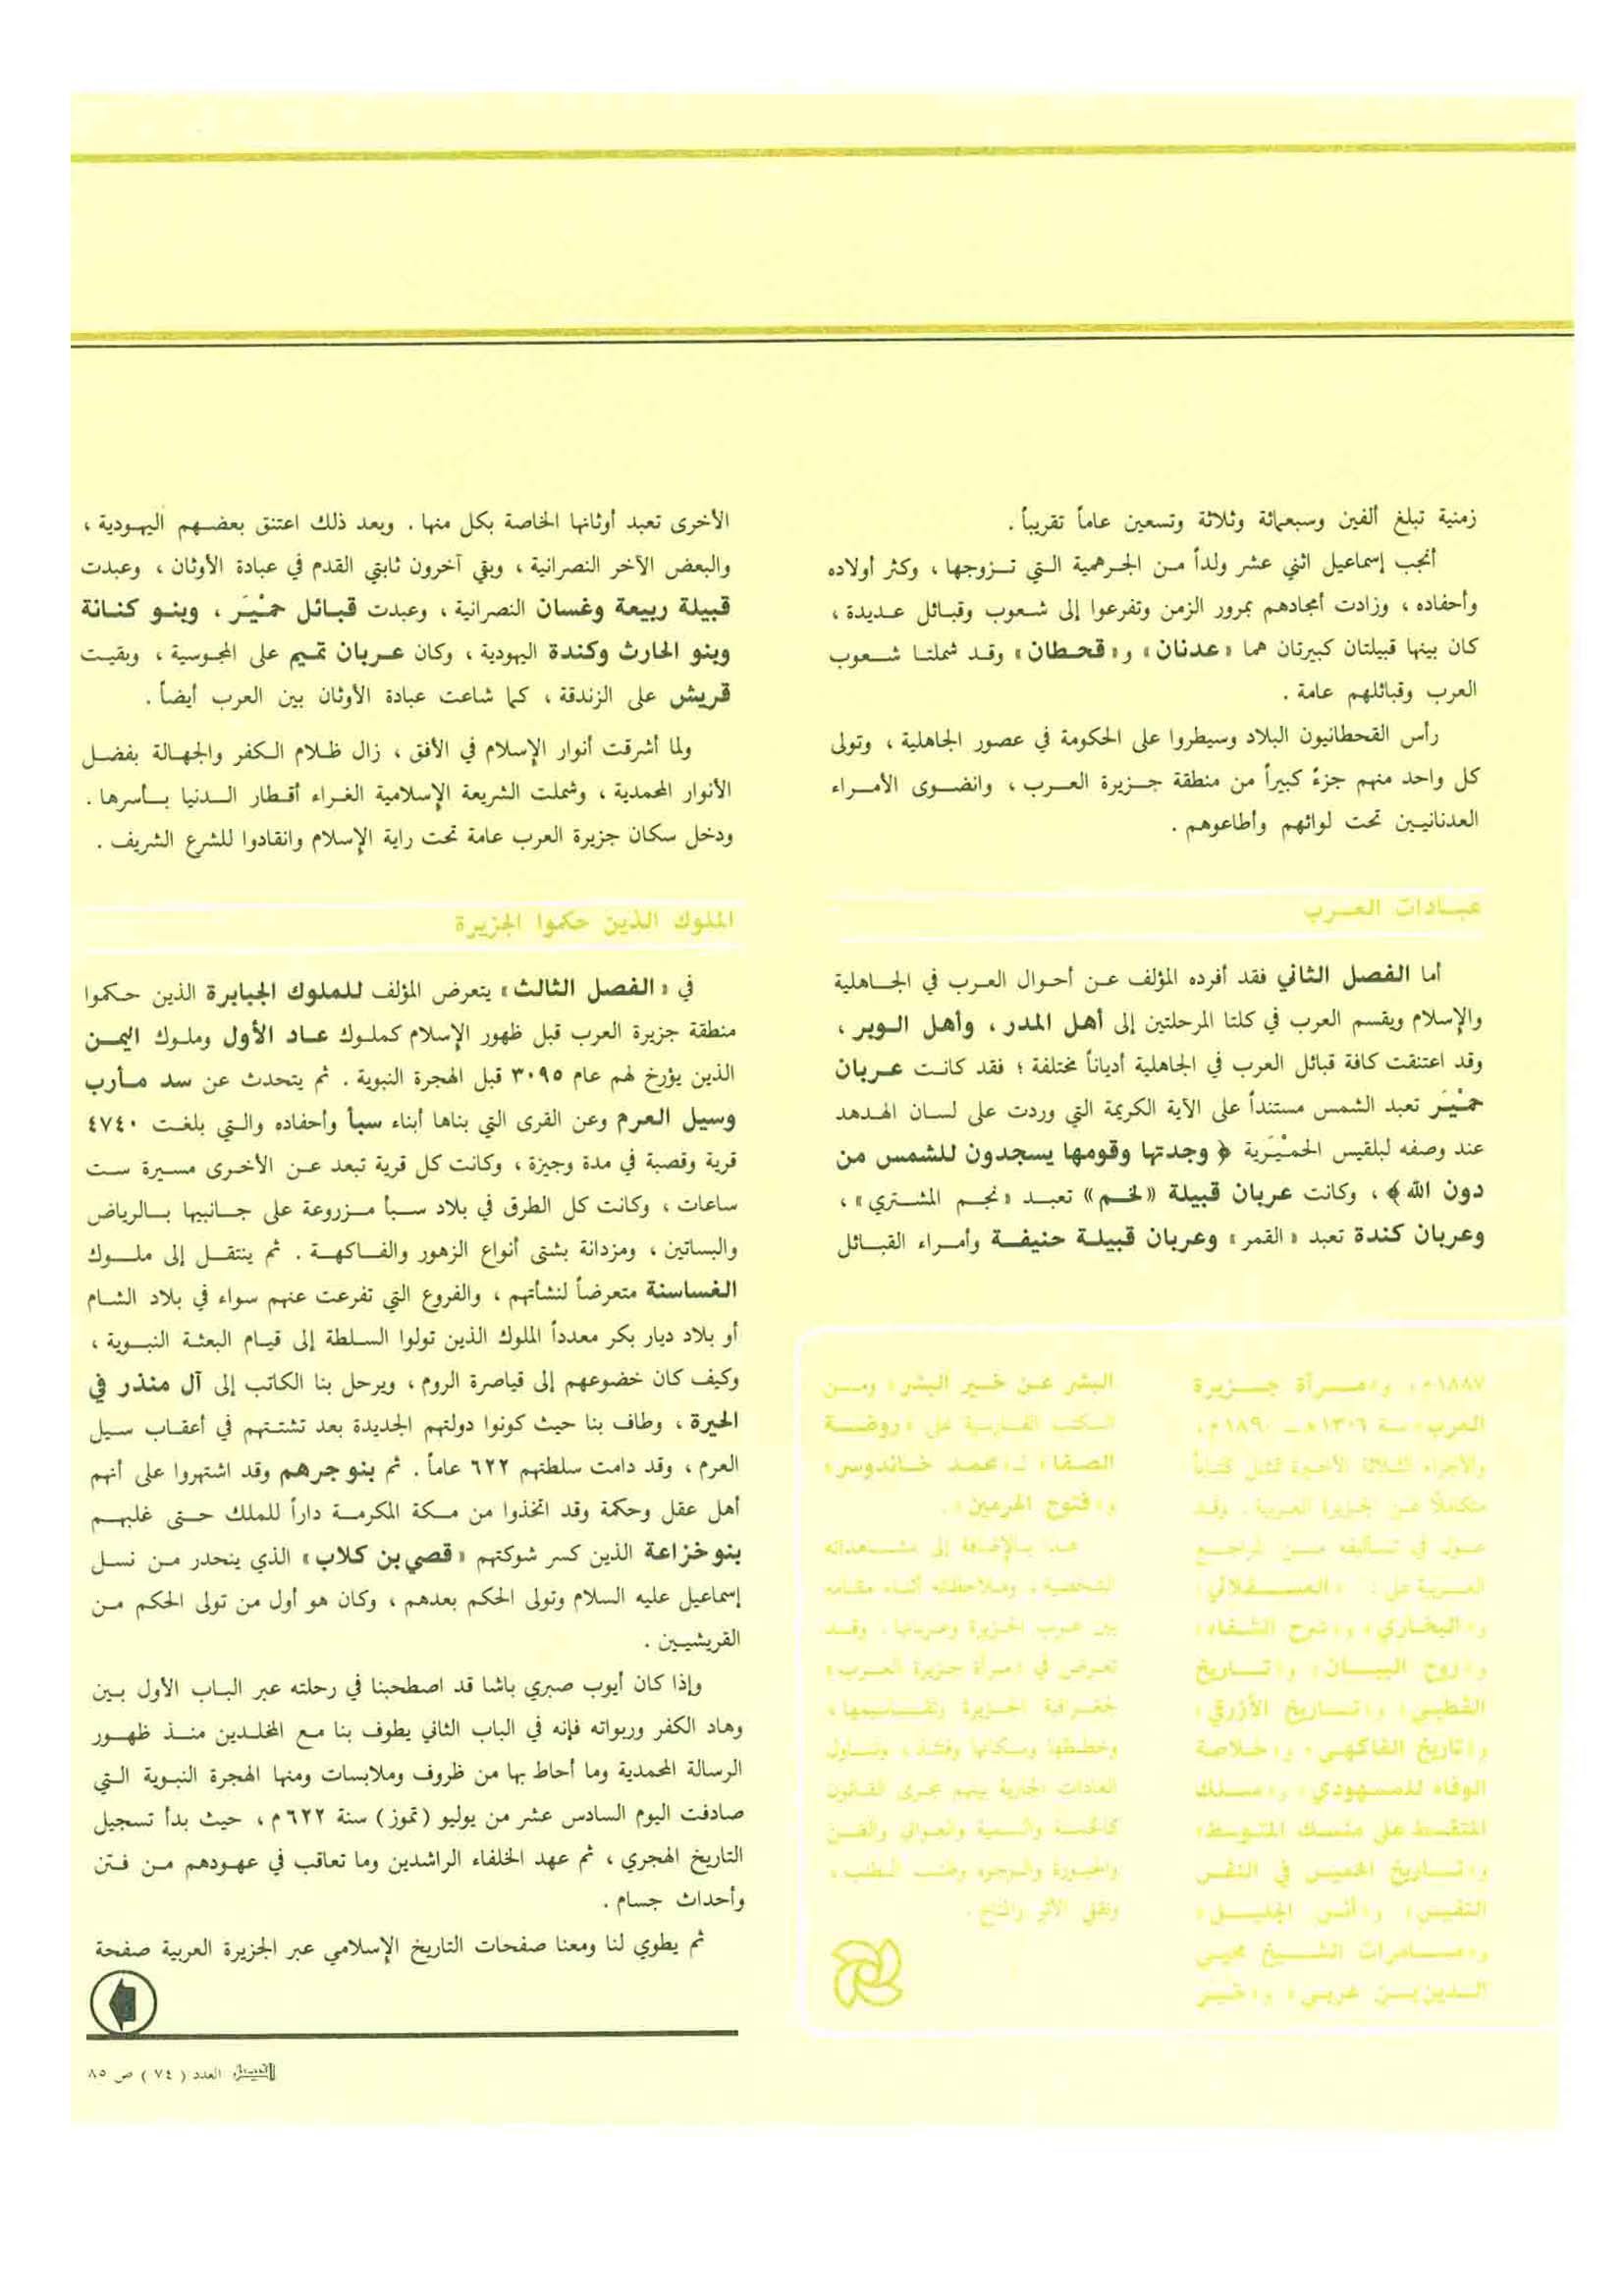 زمنية تبلغ ألفين وسبعمائة وثلاثة وتسعين عاماً تقريباً .
أنجب إسماعيل اثني عشر ولداً من الجرهمية التي تزوجها ، وكثر أولاده
وأحفاده ، وزادت أمجادهم بمرور الزمن وتفرعوا إلى شعوب وقبائل عديدة ،
كان بينها قبيلتان كبيرتان هما « عدنان » و « قحطان » وقد شملتا شعوب
العرب وقبائلهم عامة .
رأس القحطانيون البلاد وسيطروا على الحكومة في عصور الجاهلية ، وتولى
كل واحد منهم جزءً كبيراً من منطقة جزيرة العرب ، وانضوى الأمراء
العدنانيين تحت لوائهم وأطاعوهم .
عبادات العرب
أما الفصل الثاني فقد أفرده المؤلف عن أحوال العرب في الجاهلية
والإسلام ويقسم العرب في كلتا المرحلتين إلى أهل المدر ، وأهل الوبر ،
وقد اعتنقت كافة قبائل العرب في الجاهلية أدياناً مختلفة ؛ فقد كانت عربان
حمْيَر تعبد الشمس مستنداً على الآية الكريمة التي وردت على لسان الهدهد
عند وصفه لبلقيس الحمْيَرية ﴿ وجدتها وقومها يسجدون للشمس من
دون الله ﴾ ، وكانت عربان قبيلة « لخم » تعبد « نجم المشتري » ،
وعربان كندة تعبد « القمر » وعربان قبيلة حنيفة وأمراء القبائل
١٨٨٧م ، و « مرآة جزيرة
العرب » سنة ١٣٠٦هـ ـ ١٨٩٠م ،
والأجزاء الثلاثة الأخيرة تمثل كتاباً
متكاملاً عن الجزيرة العربية . وقد
عول في تأليفه من المراجع
العربية على : « العسقلاني
و « البخاري » و « شرح الشفاء »
و « روح البيان » و « تاريخ
القطبي » و « تاريخ الأزرقي »
و « تاريخ الفاكهي » و « خلاصة
الوفاء للسمهودي » و « مسلك
المتقسط على منسك المتوسط »
و « تاريخ الخميس في النفس
النفيس » و « أنس الجليل »
و « مسامرات الشيخ محيي
الدين بن عربي » و « خير
البشر عن خير البشر » ومن
الكتب الفارسية على « روضة
الصفا » لـ « محمد خاندوسر »
و « فتوح الحرمين » .
هذا بالإضافة إلى مشاهداته
الشخصية . وملاحظاته أثناء مقامه
بين عرب الجزيرة وعربانها . وقد
تعرض في « مرآة جزيرة العرب »
لجغرافية الجزيرة وتقاسيمها ،
وخططها وسكانها وفئتد ، وتناول
العادات الجارية بينهم مجرى القانون
والوجوه وطلب الطلب ،
الأخرى تعبد أوثانها الخاصة بكل منها . وبعد ذلك اعتنق بعضهم اليهودية ،
والبعض الآخر النصرانية ، وبقي آخرون ثابتي القدم في عبادة الأوثان ، وعبدت
قبيلة ربيعة وغسان النصرانية ، وعبدت قبائل حمْيَر ، وبنو كنانة
وبنو الحارث وكندة اليهودية ، وكان عربان تميم على المجوسية ، وبقيت
قريش على الزندقة ، كما شاعت عبادة الأوثان بين العرب أيضاً .
ولما أشرقت أنوار الإسلام في الأفق ، زال ظلام الكفر والجهالة بفضل
الأنوار المحمدية ، وشملت الشريعة الإسلامية الغراء أقطار الدنيا بأسرها .
ودخل سكان جزيرة العرب عامة تحت راية الإسلام وانقادوا للشرع الشريف .
الملوك الذين حكموا الجزيرة
في « الفصل الثالث » يتعرض المؤلف للملوك الجبابرة الذين حكموا
منطقة جزيرة العرب قبل ظهور الإسلام كملوك عاد الأول وملوك اليمن
الذين يؤرخ لهم عام ٣٠٩٥ قبل الهجرة النبوية . ثم يتحدث عن سد مأرب
وسيل العرم وعن القرى التي بناها أبناء سبأ وأحفاده والتي بلغت ٤٧٤٠
قرية وقصبة في مدة وجيزة ، وكانت كل قرية تبعد عن الأخرى مسيرة ست
ساعات ، وكانت كل الطرق في بلاد سبأ مزروعة على جانبيها بالرياض
والبساتين ، ومزدانة بشتى أنواع الزهور والفاكهة . ثم ينتقل إلى ملوك
الغساسنة متعرضاً لنشأتهم ، والفروع التي تفرعت عنهم سواء في بلاد الشام
أو بلاد ديار بكر معدداً الملوك الذين تولوا السلطة إلى قيام البعثة النبوية ،
وكيف كان خضوعهم إلى قياصرة الروم ، ويرحل بنا الكاتب إلى آل منذر في
الحيرة ، وطاف بنا حيث كونوا دولتهم الجديدة بعد تشتتهم في أعقاب سيل
العرم ، وقد دامت سلطتهم ٦٢٢ عاماً . ثم بنو جرهم وقد اشتهروا على أنهم
أهل عقل وحكمة وقد اتخذوا من مكة المكرمة داراً للملك حتى غلبهم
بنو خزاعة الذين كسر شوكتهم « قصي بن كلاب » الذي ينحدر من نسل
إسماعيل عليه السلام وتولى الحكم بعدهم ، وكان هو أول من تولى الحكم من
القريشيين .
وإذا كان أيوب صبري باشا قد اصطحبنا في رحلته عبر الباب الأول بين
وهاد الكفر وربواته فإنه في الباب الثاني يطوف بنا مع المخلدين منذ ظهور
الرسالة المحمدية وما أحاط بها من ظروف وملابسات ومنها الهجرة النبوية التي
صادفت اليوم السادس عشر من يوليو ( تموز ) سنة ٦٢٢م ، حيث بدأ تسجيل
التاريخ الهجري ، ثم عهد الخلفاء الراشدين وما تعاقب في عهودهم من فتن
وأحداث جسام .
ثم يطوي لنا ومعنا صفحات التاريخ الإسلامي عبر الجزيرة العربية صفحة
الفيصل العدد ( ٧٤ ) ص ٨٥